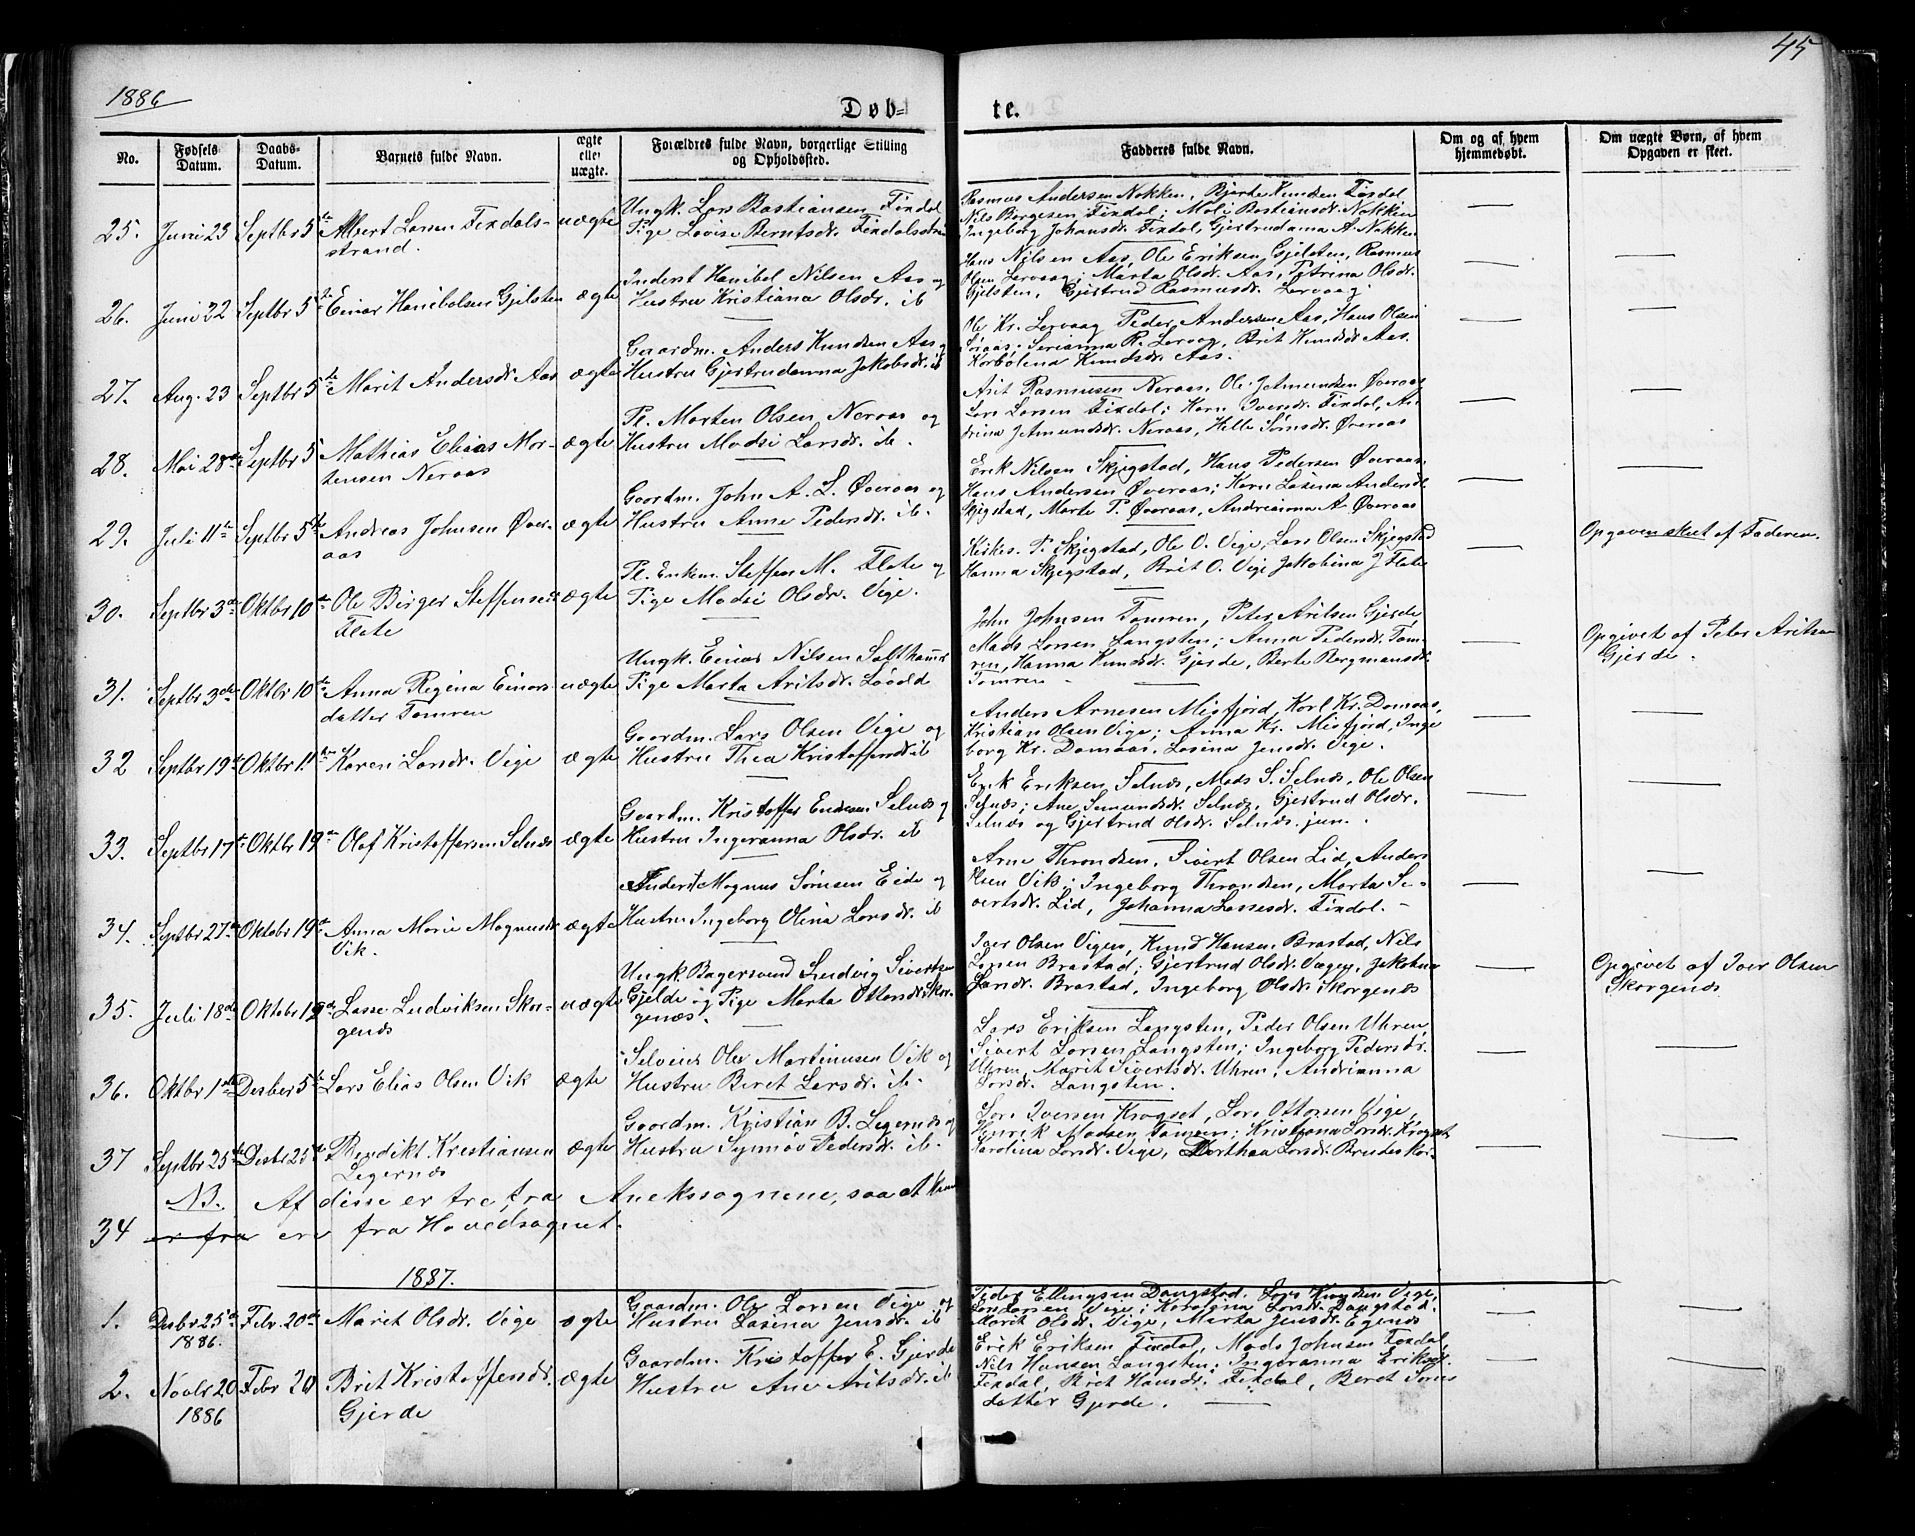 1886
45
Døb-
te.
No.
Fødsels Datum.
Daabs-Datum.
Barnets fulde Navn.
ægte eller uægte.
Forældres fulde Navn, borgerlige Stilling og Opholdssted.
Fadderes fulde Navn.
Om og af hvem hjemmedøbt.
Om uægte Børn, af hvem Opgaven er skeet.
25. Juni 23 Septbr 5te Albert Larsen Fixdals- uægte Ungk. Lars Bastiansen Fixdal
strand. Pige Lovise Berntsdr. Fixdalsstrand
Rasmus Andersen Nokken, Bjarte Knudsen Fixdal,
Nils Børgesen Fixdal; Mali Bastiansdr. Nokken
Ingeborg Johansdr. Fixdal, Gjertrudanna A. Nokken
26. Juni 22 Septbr 5te Einar Hanibalsen Gjelsten ægte Inderst Hanibal Nilsen Aas og
Hustru Kristiana Olsdr. ib
Hans Nilsen Aas, Ole Eriksen Gjelsten, Rasmus
Olsen Lervaag; Marta Olsdr. Aas, Petrina Olsdr.
Gjelsten, Gjertrud Rasmusdr. Lervaag.
27. Aug. 23 Septbr 5te Marit Andersdr Aas ægte Gaardm. Anders Knudsen Aas og
Hustru Gjertrudanna Jakobsdr. ib
Ole Kr. Lervaag Peder Andersen Aas, Hans Olsen
Søraas; Serianna R. Lervaag, Brit Knudsdr Aas.
Karbølena Knudsdr. Aas.
28. Mai 28de Septbr 5 Mathias Elias Mor- ægte Pl. Morten Olsen Neraas og
tensen Neraas Hustru Madsi Larsdr. ib.
Arit Rasmussen Neraas, Ole Jetmundsen Øveraas
Lars Larsen Fixdal; Karn Iversdr. Fixdal, An-
drina Jetmundsdr. Neraas, Helle Simsdr. Øveraas
29. Juli 11te Septbr 5te Andreas Johnsen Øver- ægte Gaardm. John A. L. Øveraas og
aas Hustru Anne Pedersdr. ib.
Erik Nilsen Skjegstad, Hans Pedersen Øveraas,
Hans Andersen Øveraas; Karn Lasina Andersdr
Skjegstad, Marte P. Øveraas, Andrianna A Øveraas
30. Septbr 3de Oktbr 10te Ole Birger Steffensen ægte Pl. Enkem. Steffen M. Flate og
Flate Pige Madsi Olsdr. Vige.
Kirkes. P. Skjegstad, Ole O. Vige, Lars Olsen Skjegstad
Hanna Skjegstad, Brit O. Vige Jakobina J Flate
Opgaven skeet af Faderen.
31. Septbr 3de Oktbr 10te Anna Regina Einars- uægte Ungk. Einar Nilsen Salthammer
datter Tomren Pige Marta Aritsdr.
John Johnsen Tomren, Peter Aritsen Gjerde,
Mads Larsen Langsten; Anna Pedersdr. Tom-
ren, Hanna Knudsdr. Gjerde, Berte Bergmansdr.
Tomren
Opgivet af Peter Aritsen
Gjerde.
32 Septbr 19de Oktbr 11te Karen Larsdr. Vige ægte Gaardm. Lars Olsen Vige og
Hustru Thea Kristoffersdr. ib
Anders Arnesen Misfjord, Karl Kr. Domaas,
Kristian Olsen Vige; Anna Kr. Misfjord, Inge
borg Kr. Domaas, Lasina Jensdr. Vige.
33. Septbr 17de Oktbr 19de Olaf Kristoffersen Selnæs ægte Gaardm. Kristoffer Endresen Selnæs og
Hustru Ingeranna Olsdr. ib
Erik Eriksen Selnæs, Mads S. Selnæs, Ole Olsen
Selnæs; Ane Simundsdr. Selnæs, Gjertrud Olsdr.
Selnæs og Gjertrud Olsdr. Selnæs jun.
34. Septbr 27de Oktobr 19de Anna Marie Magnusdr. ægte Inderst Magnus Sørensen Eide og
Vik. Hustru Ingeborg Olina Larsdr. ib
Arne Throndsen, Sivert Olsen Lid, Anders
Olsen Vik; Ingeborg Throndsen, Marta Si-
vertsdr. Lid, Johanna Lassesdr. Fixdal.
35. Juli 18de Oktobr 19de Lasse Ludviksen Skor- uægte Ungk. Bagersvend Ludvig Sivertsen
genæs Gjelde og Pige Marta Ottarsdr. Skor-
genæs.
Iver Olsen Vigen, Knud Hansen Brastad, Nils
Larsen Brastad; Gjertrud Olsdr. Vagen, Jakobina
Larsdr. Brastad, Ingeborg Olsdr. Skorgenæs
Opgivet af Iver Olsen
Skorgenæs
36. Oktbr 1ste Desber 5te Lars Elias Olsen Vik ægte Selveier Ole Martinusen Vik og
Hustru Beret Larsdr. ib.
Lars Eriksen Langsten, Peder Olsen Uhren,
Sivert Larsen Langsten; Ingeborg Pedersdr.
Uhren, Marit Sivertsdr. Uhren, Andrianna
Larsdr. Langsten.
37 Septbr 25de Desbr 25de Bendikt Kristiansen ægte Gaardm. Kristian B. Legernæs og
Legernæs Hustru Synnøv Pedersdr. ib.
Lars Iversen Kragset, Lars Ottersen Vige,
Henrik Madsen Tomren; Kristiana Larsdr. Kragset,
Karolina Larsdr. Vige, Dorthea Larsdr. Brudeskar.
NB. Af disse er tre fra Anekssognene, saa at kun
34 er fra er fra Hovedsognet.
1887.
1. Desbr 25de 1886. Febr. 20de Marit Olsdr. Vige ægte Gaardm. Ole Larsen Vige og
Hustru Lasina Jensdr. ib
Peder Ellingsen Dangstad. Lars Knudsen Vige,
Vige; Karolina Larsdr. Dangstad.
Marit Olsdr. Vige, Marta Jensdr. Egenæs
2. Novbr 20 1886 Febr 20 Brit Kristoffersdr. ægte Gaardm. Kristoffer E. Gjerde
Gjerde Hustru Ane Aritsdr. ib
Erik Eriksen Fixdal, Mads Johnsen Fixdal,
Nils Hansen Langsten; Ingeranna Eriksdr.
Fixdal, Beret Hansdr. Fixdal, Beret Jons
datter Gjerde.